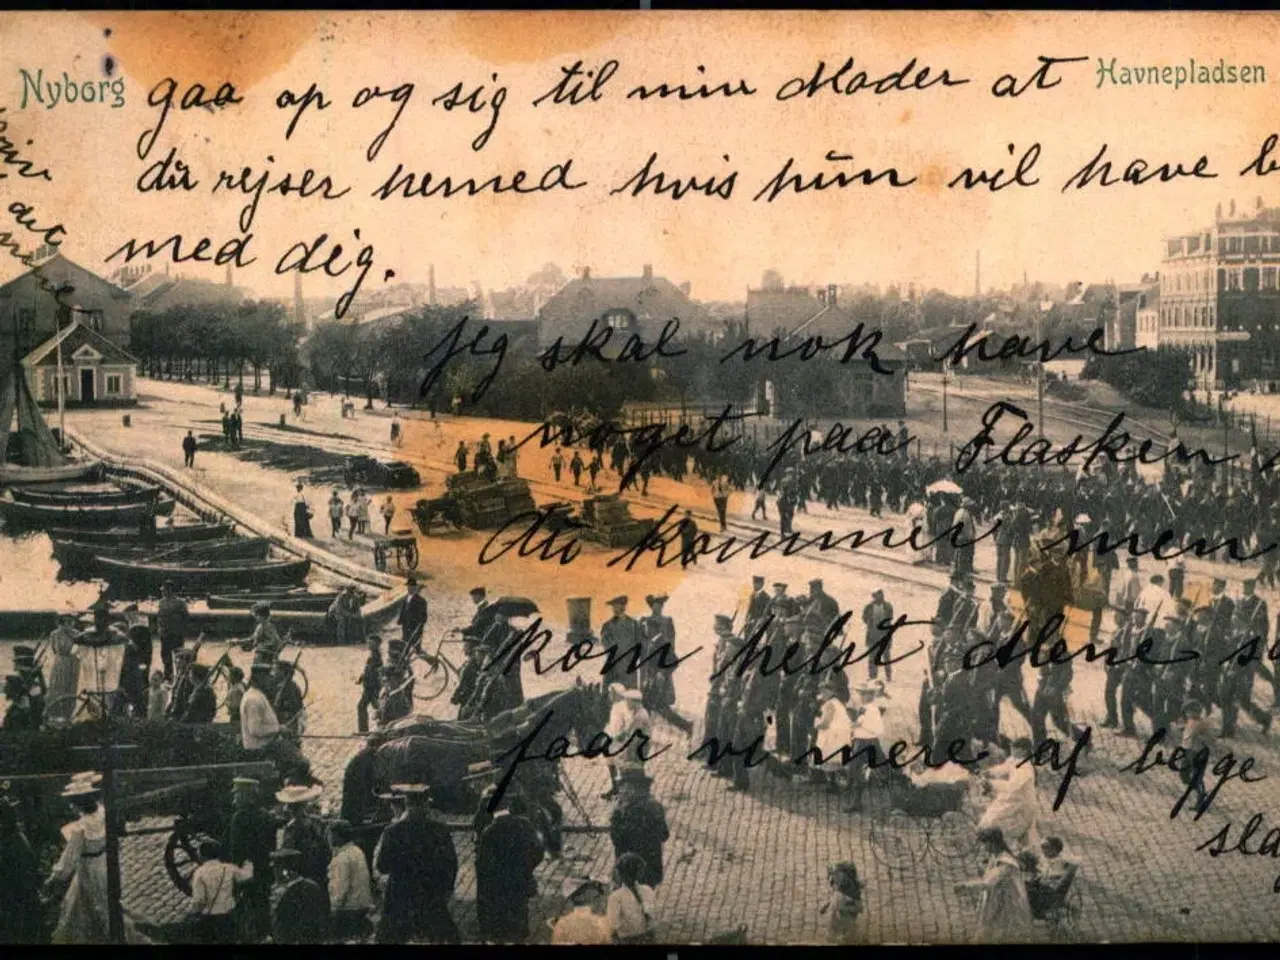 Nyborg
Havnepladsen
gaa op og sig til min Moder at
du rejser herned hvis hun vil have b
med dig.
jeg skal nok have
noget paa Flasken
du kommer men
kom helst Alene s
faar vi mere af begge
sla
det